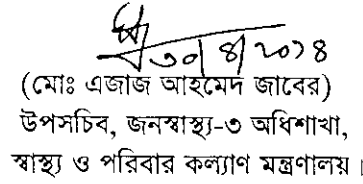 ৩০/৪/২০১৪
(মোঃ এজাজ আহমেদ জাবের)
উপসচিব, জনস্বাস্থ্য-৩ অধিশাখা,
স্বাস্থ্য ও পরিবার কল্যাণ মন্ত্রণালয়।